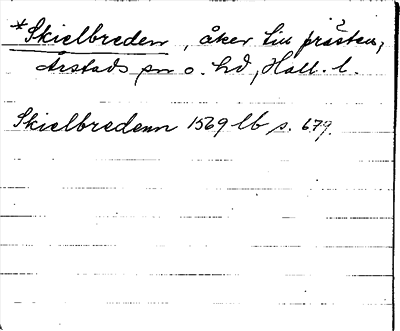 *Skielbreden, åker till prästen,
Årstads sn o. hd, Hall. l.
Skielbredenn 1569 lb s. 679.